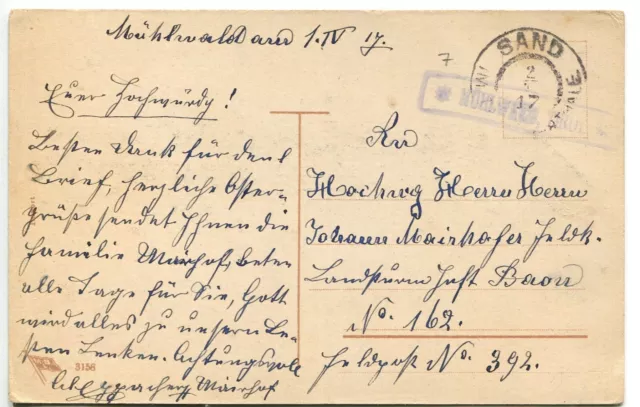 Mühlwald am 1. IV 17.
7
SAND
MÜHLWALD
Euer Hochwürdg!
Besten Dank für den
Brief, herzliche Oster-
grüße sendet Ihnen die
Familie Mairhof, beten
alle Tage für Sie, Gott
wird alles zu unsern Be-
sten Lenken. Achtungsvoll
Mairhof
3156
An
Hochwg Herrn Herrn
Johann Mairhofer Feldk.
Landsturm Baon
No. 162.
Feldpost No. 392.